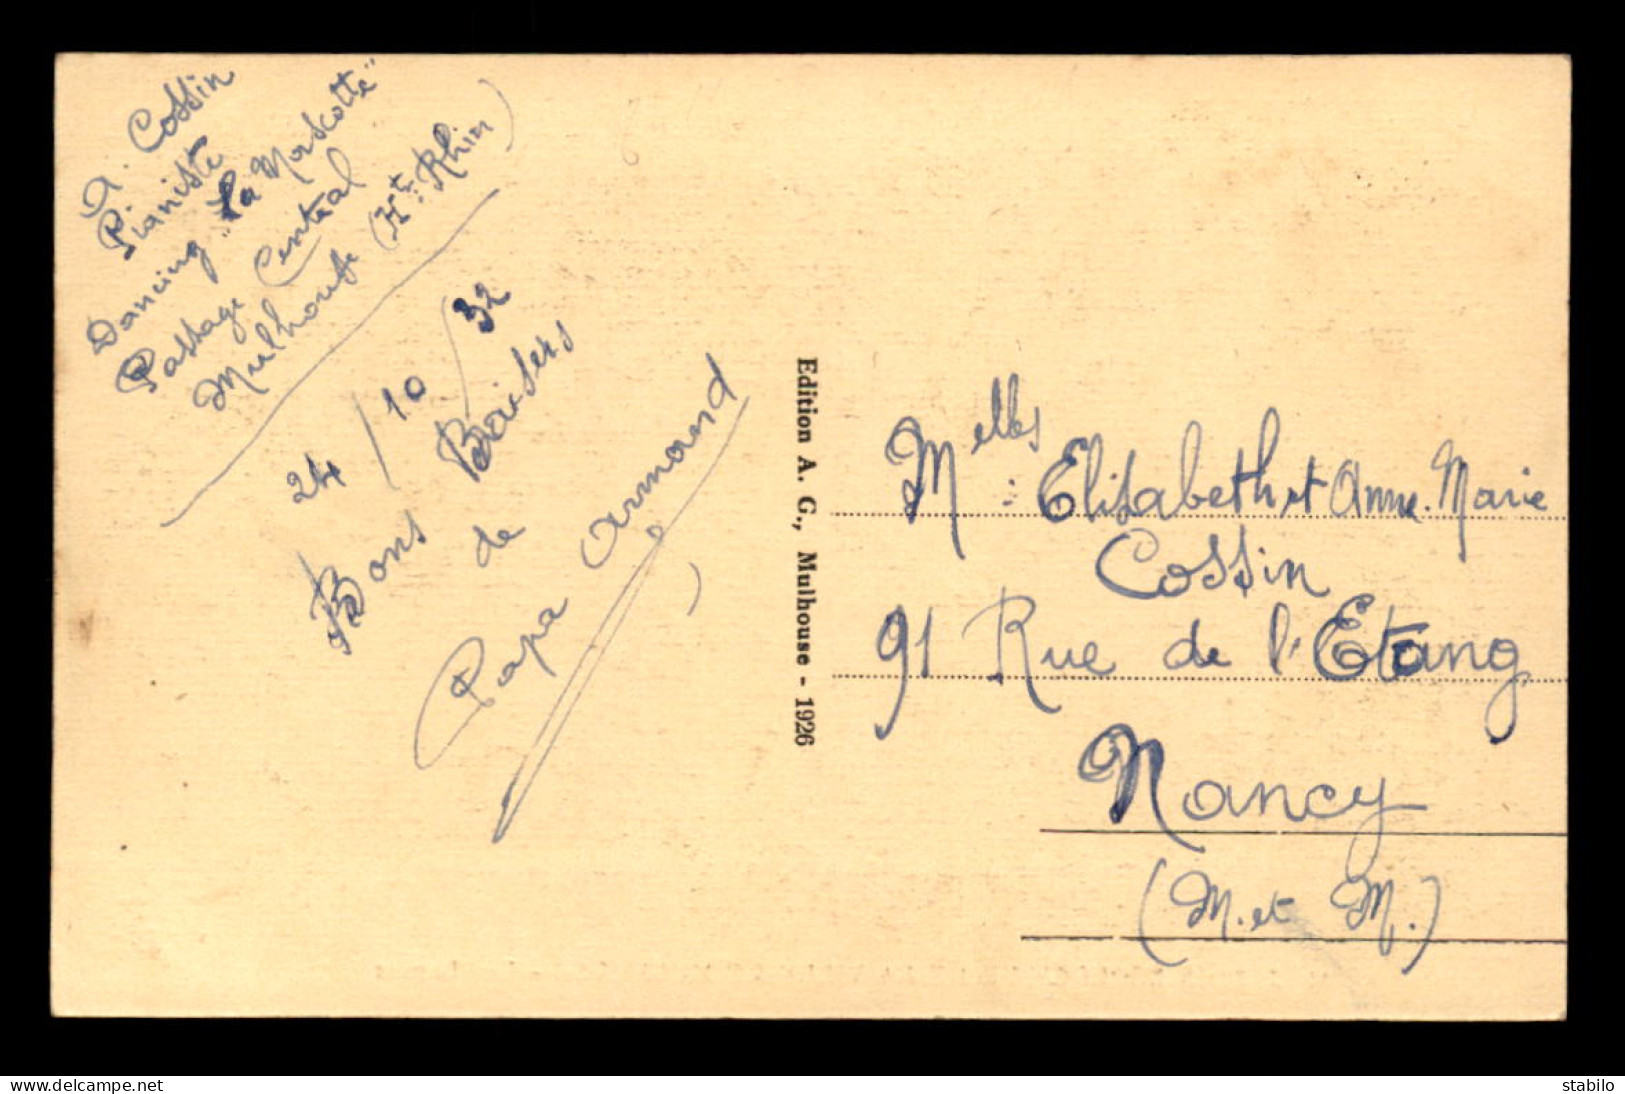 A. Cossin
Pianiste
Dancing "La Maskotte"
Passage Central
Mulhouse (Ht: Rhin)
24/10/32
Bons Baisers
de
Papa Armand
Edition A. G., Mulhouse - 1926
Melles: Elisabeth et Anne-Marie
Cossin
91 Rue de l'Etang
Nancy
(M. et M.)
delcampe.net
stabilo